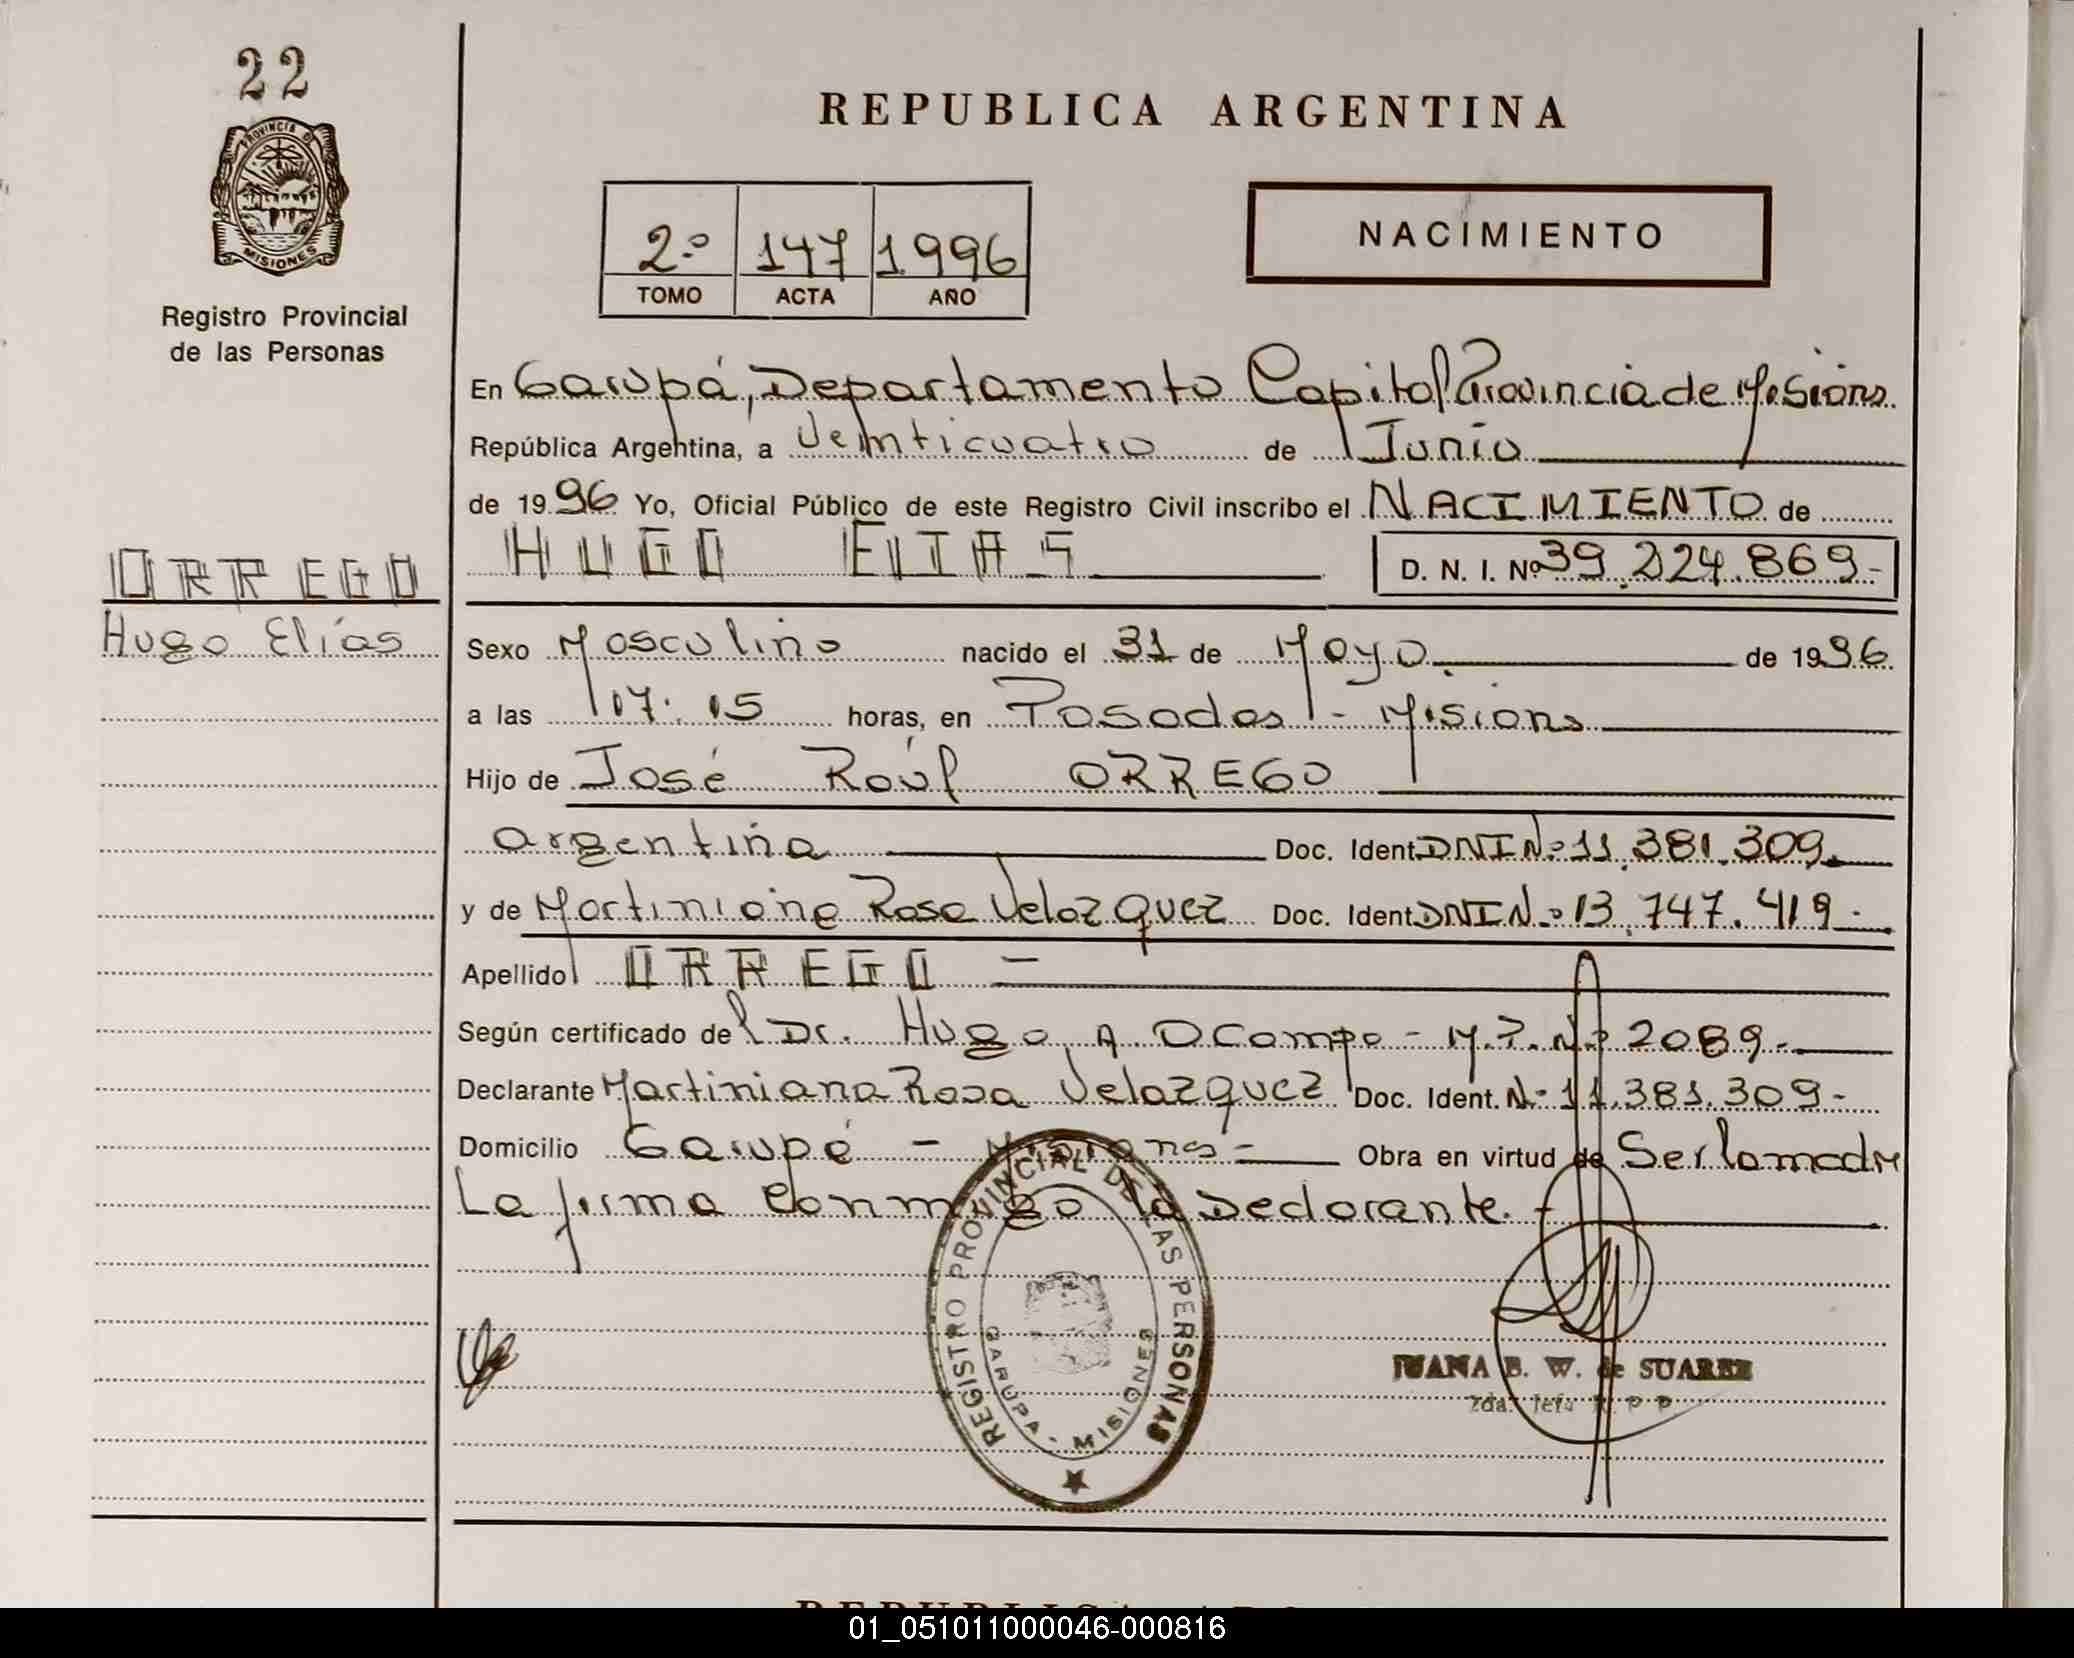 22
PROVINCIA DE
MISIONES
Registro Provincial
de las Personas
REPUBLICA ARGENTINA
2º 147 1996
TOMO ACTA AÑO
NACIMIENTO
En Garupá, Departamento Capital Provincia de Misions.
República Argentina, a Veinticuatro de Junio
de 1996 Yo, Oficial Público de este Registro Civil inscribo el NACIMIENTO de
HUGO ELIAS D. N. I. Nº 39.224.869-
ORREGO
Hugo Elías
Sexo Masculino nacido el 31 de Mayo de 1996.
a las 17:15 horas, en Posadas - Misions
Hijo de José Raúl ORREGO
argentina Doc. Ident. DNI Nº 11.381.309.
y de Martiniana Rosa Velazquez Doc. Ident. DNI Nº 13.747.419-
Apellido ORREGO -
Según certificado del Dr. Hugo A Ocampo - M.P. Nº 2089.-
Declarante Martiniana Rosa Velazquez Doc. Ident. Nº 11.381.309-
Domicilio Garupá - Misiones - Obra en virtud de Ser la madre
La firma Conmigo la Declarante. -
REGISTRO PROVINCIAL DE LAS PERSONAS
GARUPA - MISIONES
JUANA B. W. de SUAREZ
2da. Jefa R. P. P.
01_051011000046-000816